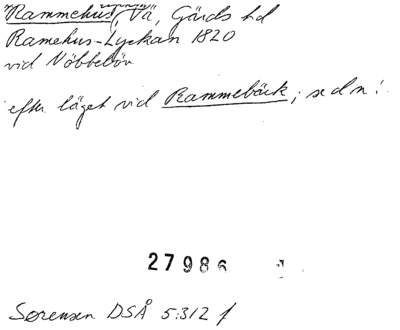 Rammehus, Vä, Gärds hd
Ramehus-Lyckan 1820
vid Nöbbelöv
efter läget vid Rammebäck; se d n!
27986
Sørensen DSÅ 5:312 f